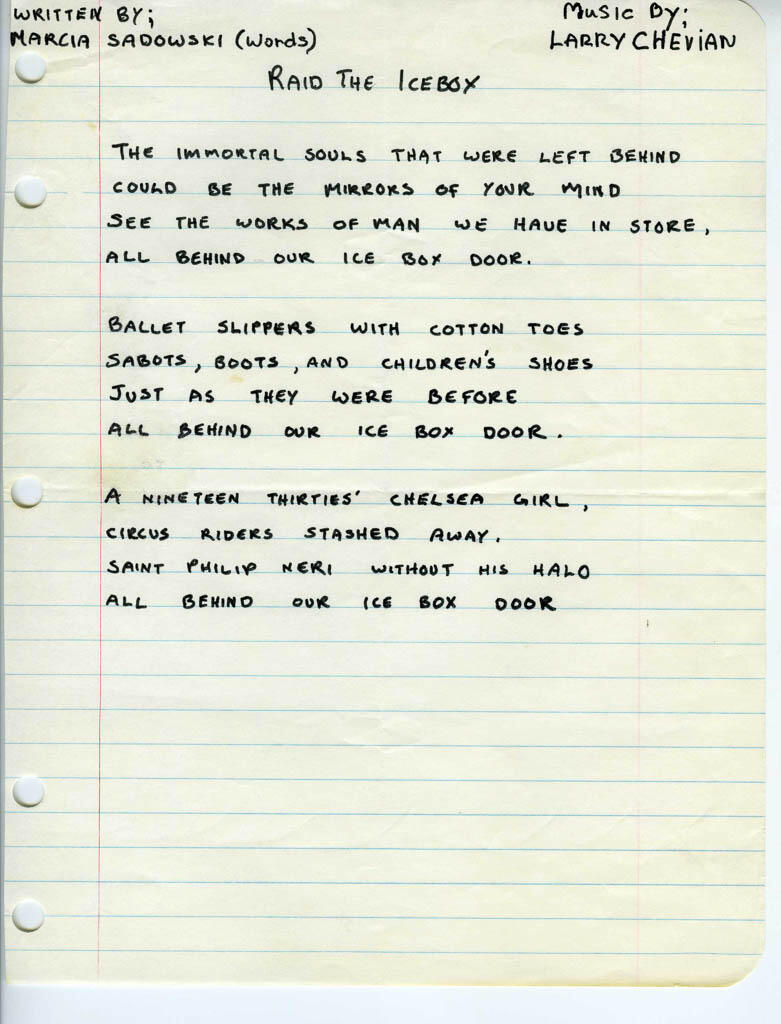 WRITTEN BY;
MARCIA SADOWSKI (Words)
MUSIC BY;
LARRY CHEVIAN
RAID THE ICEBOX
THE IMMORTAL SOULS THAT WERE LEFT BEHIND
COULD BE THE MIRRORS OF YOUR MIND
SEE THE WORKS OF MAN WE HAVE IN STORE,
ALL BEHIND OUR ICE BOX DOOR.
BALLET SLIPPERS WITH COTTON TOES
SABOTS, BOOTS, AND CHILDREN'S SHOES
JUST AS THEY WERE BEFORE
ALL BEHIND OUR ICE BOX DOOR.
A NINETEEN THIRTIES' CHELSEA GIRL,
CIRCUS RIDERS STASHED AWAY.
SAINT PHILIP NERI WITHOUT HIS HALO
ALL BEHIND OUR ICE BOX DOOR